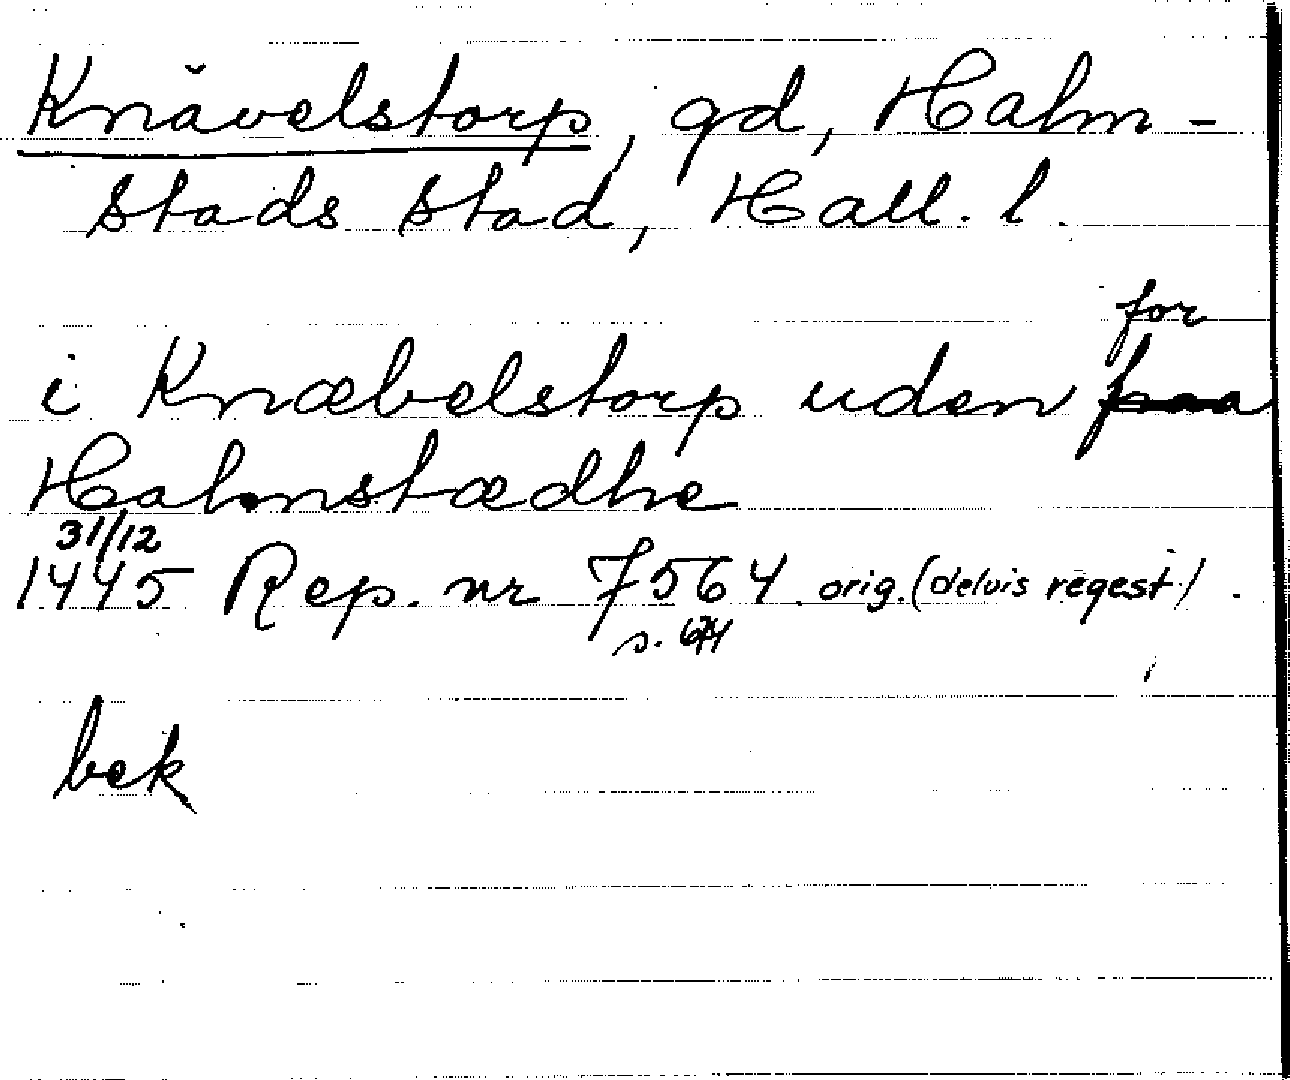 Knävelstorp, gd, Halm-
stads stad, Hall. l.
for
i Knæbelstorp uden
Halmstædhe
31/12
1445 Rep. nr 7564 orig. (delvis regest).
s.
bek